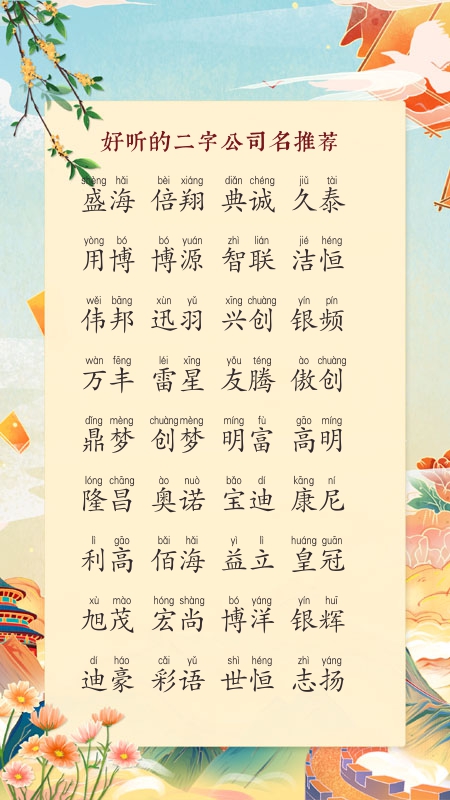 好听的二字公司名推荐
shèng hǎi bèi xiáng diǎn chéng jiǔ tài
盛海 倍翔 典诚 久泰
yòng bó bó yuán zhì lián jié héng
用博 博源 智联 洁恒
wěi bāng xùn yǔ xīng chuàng yín pín
伟邦 迅羽 兴创 银频
wàn fēng léi xīng yǒu téng ào chuàng
万丰 雷星 友腾 傲创
dǐng mèng chuàng mèng míng fù gāo míng
鼎梦 创梦 明富 高明
lóng chāng ào nuò bǎo dí kāng ní
隆昌 奥诺 宝迪 康尼
lì gāo bǎi hǎi yì lì huáng guān
利高 佰海 益立 皇冠
xù mào hóng shàng bó yáng yín huī
旭茂 宏尚 博洋 银辉
dí háo cǎi yǔ shì héng zhì yáng
迪豪 彩语 世恒 志扬